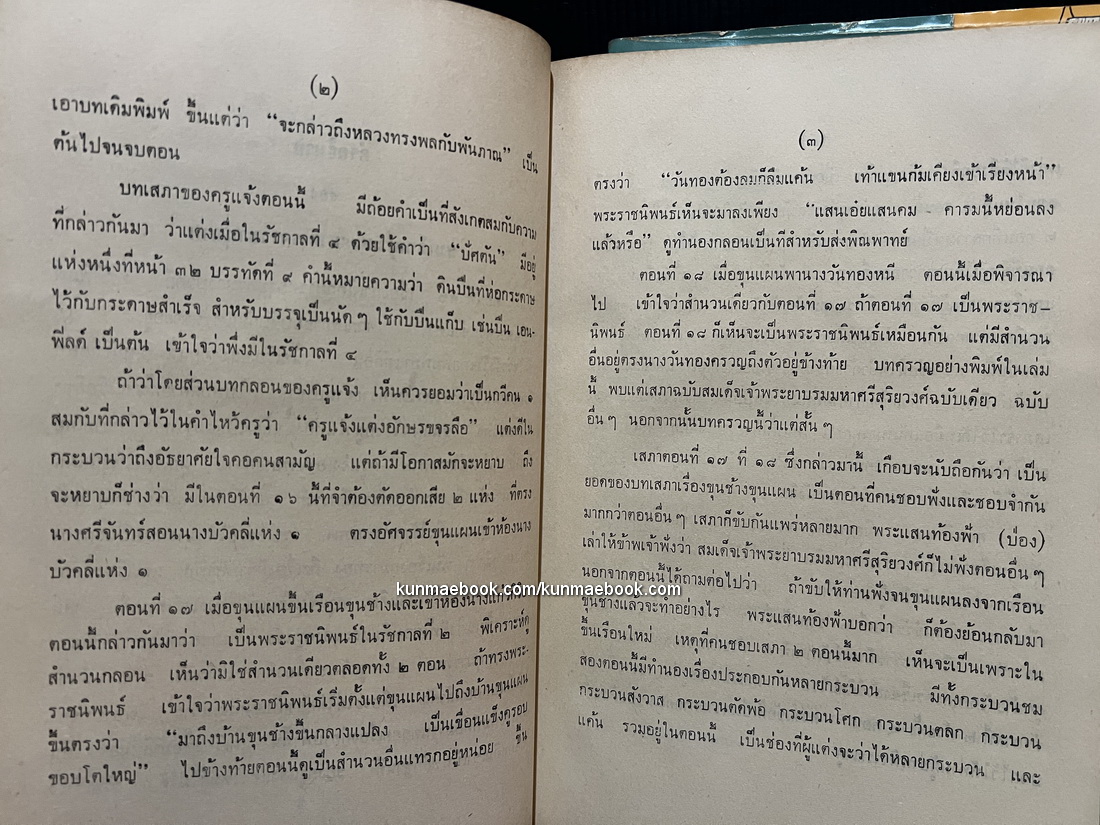 (๒)
เอาบทเดิมพิมพ์ ขึ้นแต่ว่า “จะกล่าวถึงหลวงทรงพลกับพันภาณ” เป็น
ต้นไปจนจบตอน
บทเสภาของครูแจ้งตอนนี้ มีถ้อยคำเป็นที่สังเกตสมกับความ
ที่กล่าวกันมา ว่าแต่งเมื่อในรัชกาลที่ ๔ ด้วยใช้คำว่า “ปัศตัน” มีอยู่
แห่งหนึ่งที่หน้า ๓๒ บรรทัดที่ ๙ คำนี้หมายความว่า ดินปืนที่ห่อกระดาษ
ไว้กับกระดาษสำเร็จ สำหรับบรรจุเป็นนัด ๆ ใช้กับปืนแก๊บ เช่นปืน เอน-
ฟีลด์ เป็นต้น เข้าใจว่าพึ่งมีในรัชกาลที่ ๔
ถ้าว่าโดยส่วนบทกลอนของครูแจ้ง เห็นควรยอมว่าเป็นกวีคน ๑
สมกับที่กล่าวไว้ในคำไหว้ครูว่า “ครูแจ้งแต่งอักษรขจรลือ” แต่งดีใน
กระบวนว่าถึงอัธยาศัยใจคอคนสามัญ แต่ถ้ามีโอกาสมักจะหยาบ ถึง
จะหยาบก็ช่างว่า มีในตอนที่ ๑๖ นี้ที่จำต้องตัดออกเสีย ๒ แห่ง ที่ตรง
นางศรีจันทร์สอนนางบัวคลี่แห่ง ๑ ตรงอัศจรรย์ขุนแผนเข้าห้องนาง
บัวคลี่แห่ง ๑
ตอนที่ ๑๗ เมื่อขุนแผนขึ้นเรือนขุนช้างและเข้าห้องนางแก้วกิริยา
ตอนนี้กล่าวกันมาว่า เป็นพระราชนิพนธ์ในรัชกาลที่ ๒ พิเคราะห์ดู
สำนวนกลอน เห็นว่ามิใช่สำนวนเดียวตลอดทั้ง ๒ ตอน ถ้าทรงพระ-
ราชนิพนธ์ เข้าใจว่าพระราชนิพนธ์เริ่มตั้งแต่ขุนแผนไปถึงบ้านขุนแผน
ขึ้นตรงว่า “มาถึงบ้านขุนช้างขึ้นกลางแปลง เป็นเขื่อนแข็งคูรอบ
ขอบโตใหญ่” ไปข้างท้ายตอนนี้ดูเป็นสำนวนอื่นแทรกอยู่หน่อย ขึ้น
(๓)
ตรงว่า “วันทองต้องลมก็ลืมแค้น เท้าแขนก้มเคียงเข้าเรียงหน้า”
พระราชนิพนธ์เห็นจะมาลงเพียง “แสนเอ๋ยแสนคม คารมนี้หย่อนลง
แล้วหรือ” ดูทำนองกลอนเป็นทีสำหรับส่งพิณพาทย์
ตอนที่ ๑๘ เมื่อขุนแผนพานางวันทองหนี ตอนนี้เมื่อพิจารณา
ไป เข้าใจว่าสำนวนเดียวกับตอนที่ ๑๗ ถ้าตอนที่ ๑๗ เป็นพระราช-
นิพนธ์ ตอนที่ ๑๘ ก็เห็นจะเป็นพระราชนิพนธ์เหมือนกัน แต่มีสำนวน
อื่นอยู่ตรงนางวันทองครวญถึงตัวอยู่ข้างท้าย บทครวญอย่างพิมพ์ในเล่ม
นี้ พบแต่เสภาฉบับสมเด็จเจ้าพระยาบรมมหาศรีสุริยวงศ์ฉบับเดียว ฉบับ
อื่น ๆ นอกจากนั้นบทครวญนี้ว่าแต่สั้น ๆ
เสภาตอนที่ ๑๗ ที่ ๑๘ ซึ่งกล่าวมานี้ เกือบจะนับถือกันว่า เป็น
ยอดของบทเสภาเรื่องขุนช้างขุนแผน เป็นตอนที่คนชอบฟังและชอบจำกัน
มากกว่าตอนอื่น ๆ เสภาก็ขับกันแพร่หลายมาก พระแสนท้องฟ้า (ป่อง)
เล่าให้ข้าพเจ้าฟังว่า สมเด็จเจ้าพระยาบรมมหาศรีสุริยวงศ์ก็ไม่ฟังตอนอื่น ๆ
นอกจากตอนนี้ได้ถามต่อไปว่า ถ้าขับให้ท่านฟังจนขุนแผนลงจากเรือน
ขุนช้างแล้วจะทำอย่างไร พระแสนท้องฟ้าบอกว่า ก็ต้องย้อนกลับมา
ขึ้นเรือนใหม่ เหตุที่คนชอบเสภา ๒ ตอนนี้มาก เห็นจะเป็นเพราะใน
สองตอนนี้มีทำนองเรื่องประกอบกันหลายกระบวน มีทั้งกระบวนชม
กระบวนสังวาส กระบวนตัดพ้อ กระบวนโศก กระบวนตลก กระบวน
แค้น รวมอยู่ในตอนนี้ เป็นช่องที่ผู้แต่งจะว่าได้หลายกระบวน และ
kunmaebook.com/kunmaebook.com